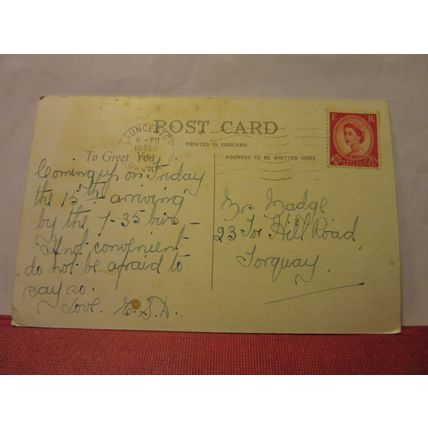 LAUNCESTON
6-PM
10 SEP
POST CARD
E R
PRINTED IN ENGLAND
To Greet You
ADDRESS TO BE WRITTEN HERE
Coming up on Friday
the 15th - arriving
by the 7-35 bus -
If not convenient
do not be afraid to
say so.
Love. E.S.D.
Mrs Madge
23 Tor Hill Road
Torquay.